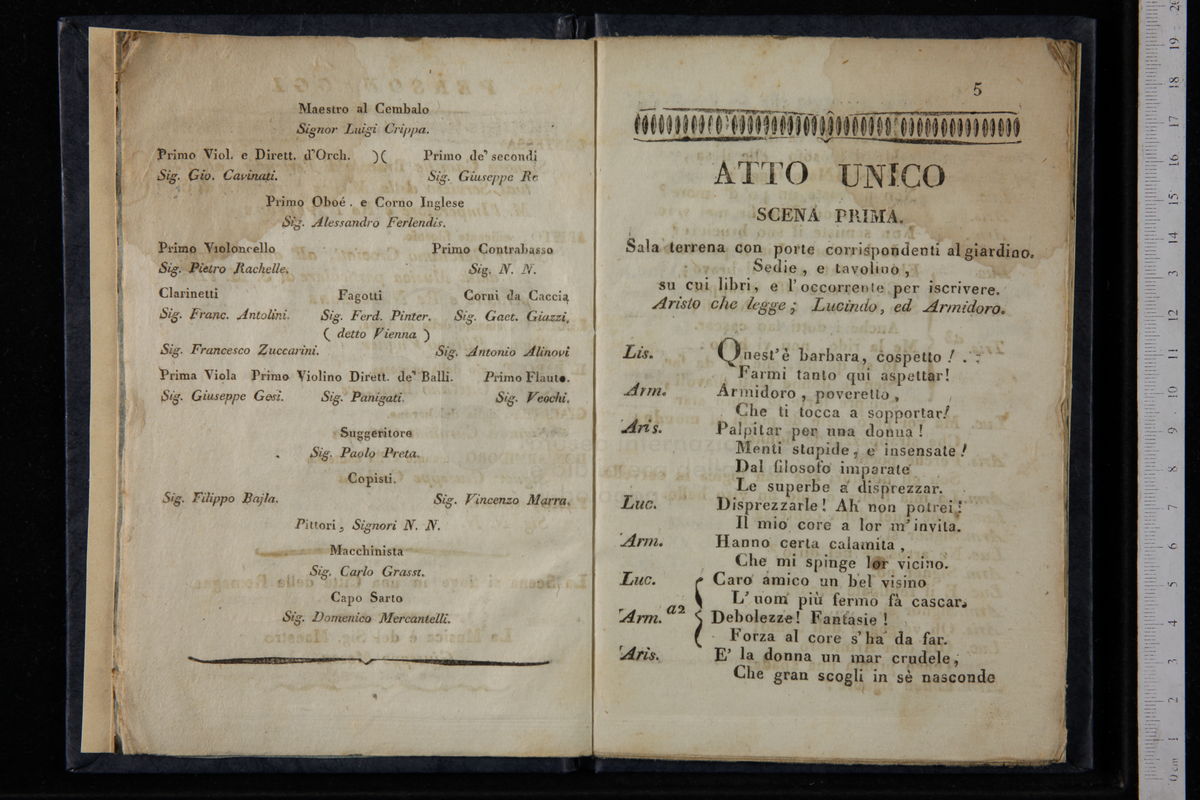 Maestro al Cembalo
Signor Luigi Crippa.
Primo Viol. e Dirett. d'Orch. )( Primo de' secondi
Sig. Gio. Cavinati. Sig. Giuseppe Re
Primo Oboé. e Corno Inglese
Sig. Alessandro Ferlendis.
Primo Violoncello Primo Contrabasso
Sig. Pietro Rachelle. Sig. N. N.
Clarinetti Fagotti Corni da Caccia
Sig. Franc. Antolini. Sig. Ferd. Pinter. Sig. Gaet. Giazzi,
( detto Vienna )
Sig. Francesco Zuccarini. Sig. Antonio Alinovi
Prima Viola Primo Violino Dirett. de' Balli. Primo Flauto.
Sig. Giuseppe Gesi. Sig. Panigati. Sig. Vecchi.
Suggeritore
Sig. Paolo Preta.
Copisti.
Sig. Filippo Bajla. Sig. Vincenzo Marra.
Pittori, Signori N. N.
Macchinista
Sig. Carlo Grassi.
Capo Sarto
Sig. Domenico Mercantelli.
5
ATTO UNICO
SCENA PRIMA.
Sala terrena con porte corrispondenti al giardino.
Sedie, e tavolino,
su cui libri, e l'occorrente per iscrivere.
Aristo che legge; Lucindo, ed Armidoro.
Lis. Quest'è barbara, cospetto! . .
Farmi tanto qui aspettar!
Arm. Armidoro, poveretto,
Che ti tocca a sopportar!
Aris. Palpitar per una donna!
Menti stupide, e insensate!
Dal filosofo imparate
Le superbe a disprezzar.
Luc. Disprezzarle! Ah non potrei!
Il mio core a lor m'invita.
Arm. Hanno certa calamita,
Che mi spinge lor vicino.
Luc. Caro amico un bel visino
L'uom più fermo fà cascar.
Arm. a2 Debolezze! Fantasie!
Forza al core s'ha da far.
Aris. E' la donna un mar crudele,
Che gran scogli in sè nasconde
0 cm 1 2 3 4 5 6 7 8 9 10 11 12 13 14 15 16 17 18 19 20